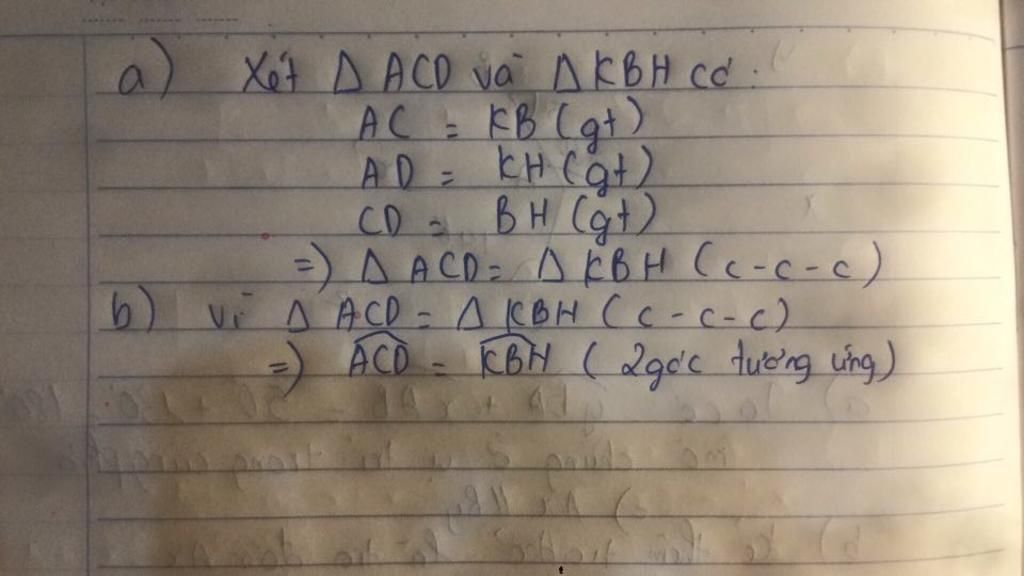 a) Xét Δ ACD và Δ KBH có :
AC = KB (gt)
AD = KH (gt)
CD = BH (gt)
=) Δ ACD = Δ KBH ( c - c - c )
b) Vì Δ ACD = Δ KBH ( c - c - c )
=) \widehat{ACD} = \widehat{KBH} ( 2 góc tương ứng )